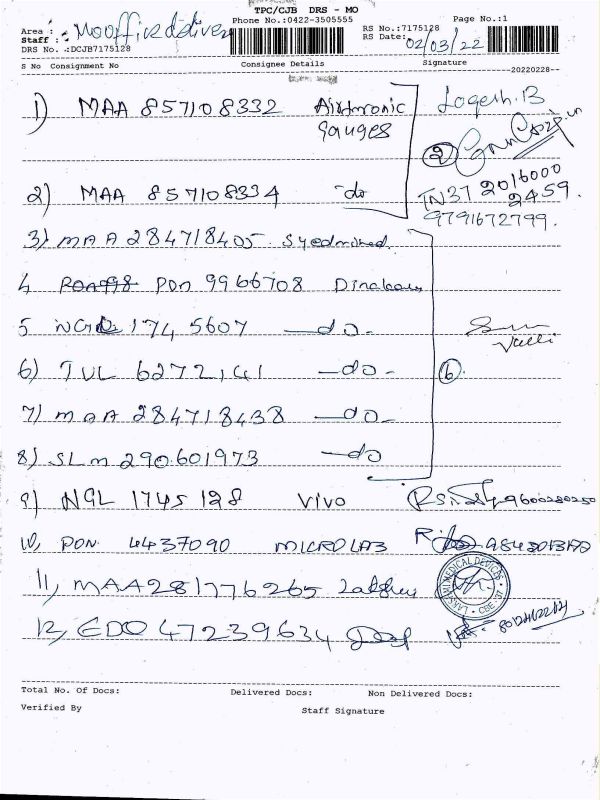 TPC/CJB DRS - MO
Phone No.:0422-3505555 Page No.:1
Area :
Staff :
DRS No.:DCJB7175128
RS No.:7175128
RS Date: 02/03/22
S No Consignment No Consignee Details Signature
20220228
1) MAA 857108332 Airtronic Gauges Logesh.B
2) MAA 857108334 -do
2
TN37 2016000
2459.
9791672799.
3) MAA 284718405 Syedmohmed
4 PON 9966708
5 NGL 1745607 -do-
Valli
6) TVL 6272141 -do-
6
7) MAA 284718438 -do-
8) SLM 290601973 -do
9) NGL 1745128 VIVO 9600280250
10, PON 4437090 MICROLAB
11, MAA281776265
LAKSHMI MEDICAL DEVICES CBE
12, EDO 47239634
Total No. Of Docs: Delivered Docs: Non Delivered Docs:
Verified By Staff Signature